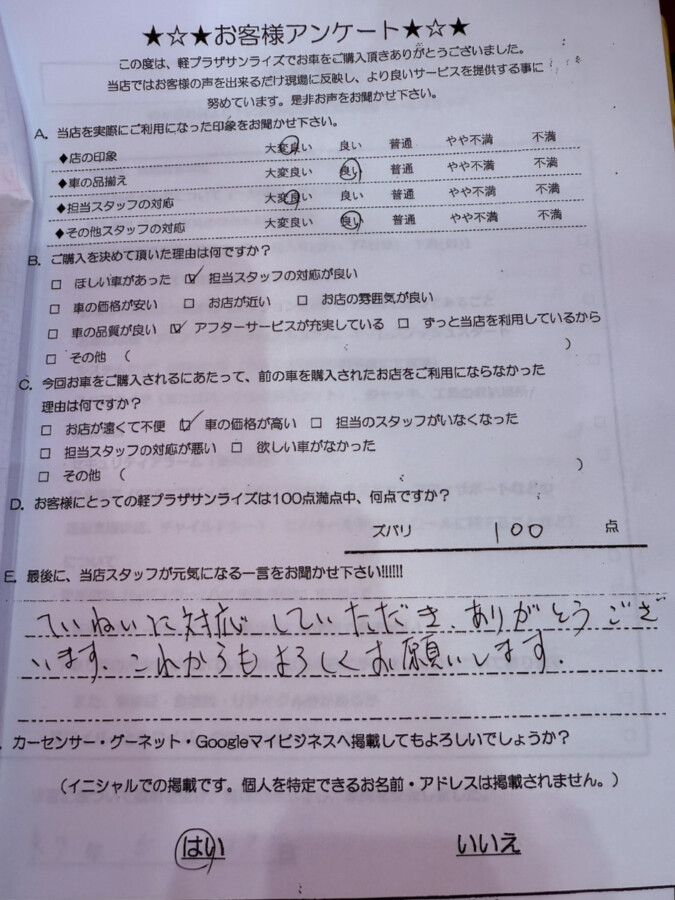 ★☆★お客様アンケート★☆★
この度は、軽プラザサンライズでお車をご購入頂きありがとうございました。
当店ではお客様の声を出来るだけ現場に反映し、より良いサービスを提供する事に
努めています。是非お声をお聞かせ下さい。
A. 当店を実際にご利用になった印象をお聞かせ下さい。
◆店の印象 大変良い 良い 普通 やや不満 不満
◆車の品揃え 大変良い 良い 普通 やや不満 不満
◆担当スタッフの対応 大変良い 良い 普通 やや不満 不満
◆その他スタッフの対応 大変良い 良い 普通 やや不満 不満
B. ご購入を決めて頂いた理由は何ですか？
□ ほしい車があった ☑ 担当スタッフの対応が良い
□ 車の価格が安い □ お店が近い □ お店の雰囲気が良い
□ 車の品質が良い ☑ アフターサービスが充実している □ ずっと当店を利用しているから
□ その他 （ ）
C. 今回お車をご購入されるにあたって、前の車を購入されたお店をご利用にならなかった
理由は何ですか？
□ お店が遠くて不便 ☑ 車の価格が高い □ 担当のスタッフがいなくなった
□ 担当スタッフの対応が悪い □ 欲しい車がなかった
□ その他 （ ）
D. お客様にとっての軽プラザサンライズは100点満点中、何点ですか？
ズバリ 100 点
E. 最後に、当店スタッフが元気になる一言をお聞かせ下さい!!!!!!
ていねいに対応していただき、ありがとうござ
います。これからもよろしくお願いします．
カーセンサー・グーネット・Googleマイビジネスへ掲載してもよろしいでしょうか？
（イニシャルでの掲載です。個人を特定できるお名前・アドレスは掲載されません。）
はい いいえ